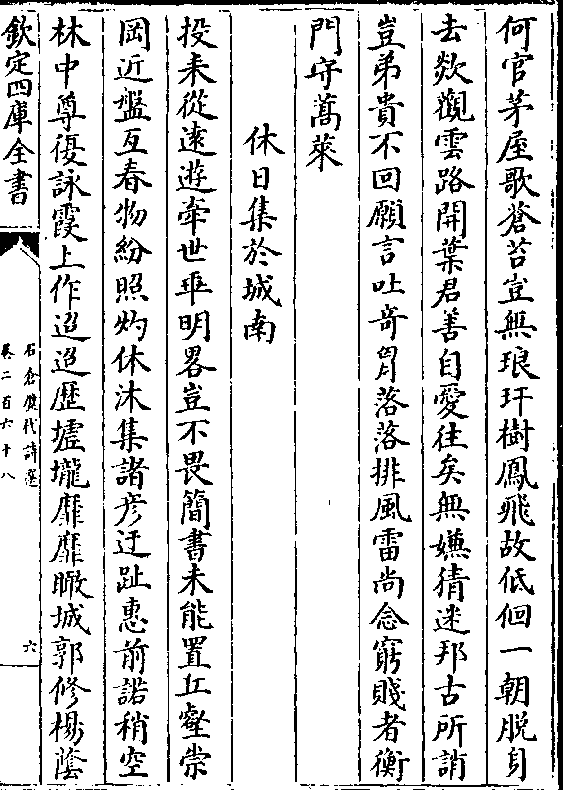 何官茅屋歌蒼苔豈無琅玕樹鳳飛故低佪一朝脱身
去欻觀雲路開葉君善自愛徃矣無嫌猜迷邦古所誚
豈弟貴不回願言吐奇胷落落排風雷尚念窮賤者衡
門守蒿萊
休日集於城南
投耒從逺遊牽世乖明畧豈不畏簡書未能置丘壑崇
岡近盤互春物紛照灼休沐集諸彦迂趾惠前諾稍空
林中尊優詠霞上作迢迢歴墟壠靡靡瞰城郭修楊蔭
欽定四庫全書
石倉歴代詩選
卷二百六十八
六